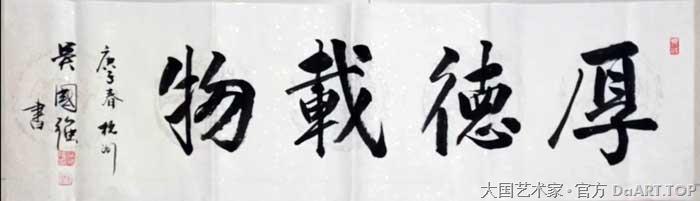 厚德載物
庚子春杭州
吴國強書
大国艺术家·官方 DaART.TOP